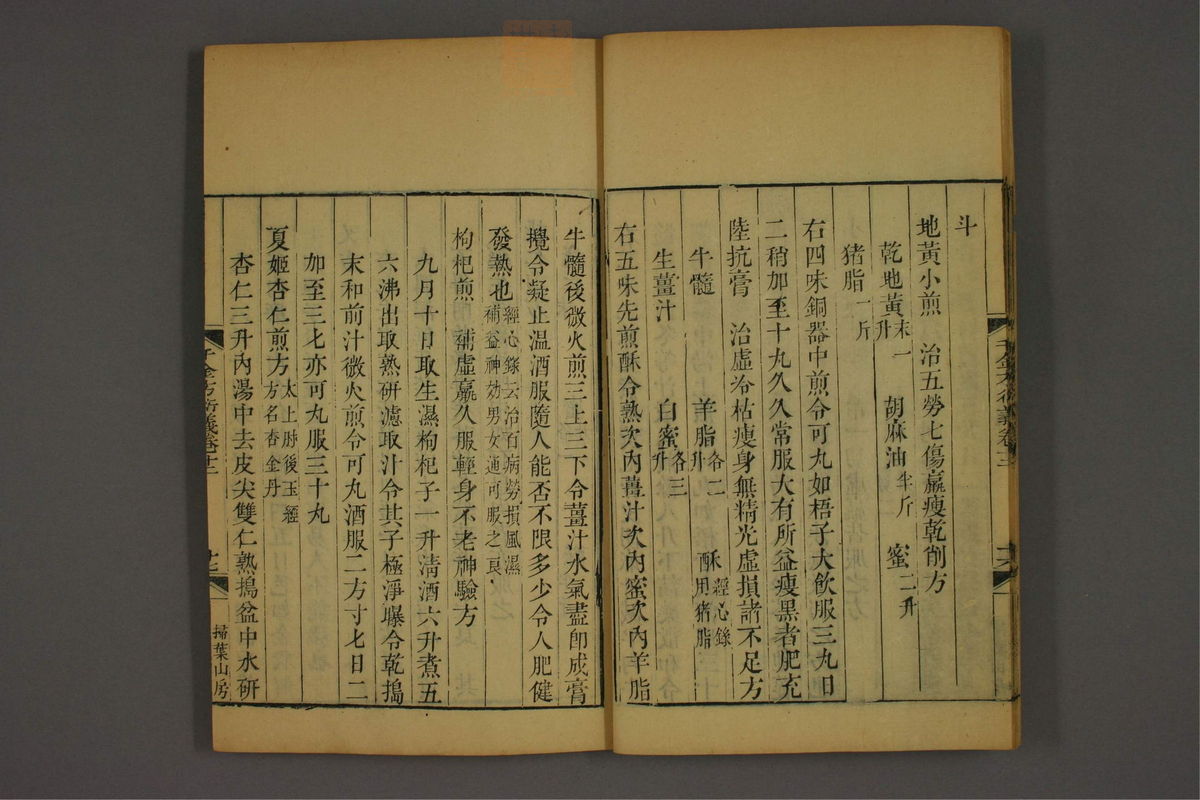 斗
地黃小煎　治五勞七傷羸瘦乾削方
乾地黃末一升　胡麻油半斤　蜜二升
猪脂一斤
右四味銅器中煎令可丸如梧子大飲服三丸日
二稍加至十丸久久常服大有所益瘦黑者肥充
陸抗膏　治虛冷枯瘦身無精光虛損諸不足方
牛髓　羊脂各二升　酥經心錄用猪脂
生薑汁　白蜜各三升
右五味先煎酥令熟次內薑汁次內蜜次內羊脂
牛髓後微火煎三上三下令薑汁水氣盡卽成膏
攪令凝止温酒服隨人能否不限多少令人肥健
發熱也經心錄云治百病勞損風濕補益神効男女通可服之良
枸杞煎　補虛羸久服輕身不老神驗方
九月十日取生濕枸杞子一升淸酒六升煮五
六沸出取熟研濾取汁令其子極淨曝令乾搗
末和前汁微火煎令可丸酒服二方寸匕日二
加至三匕亦可丸服三十丸
夏姬杏仁煎方太上肘後玉經方名杏金丹
杏仁三升內湯中去皮尖雙仁熟搗盆中水研
掃葉山房